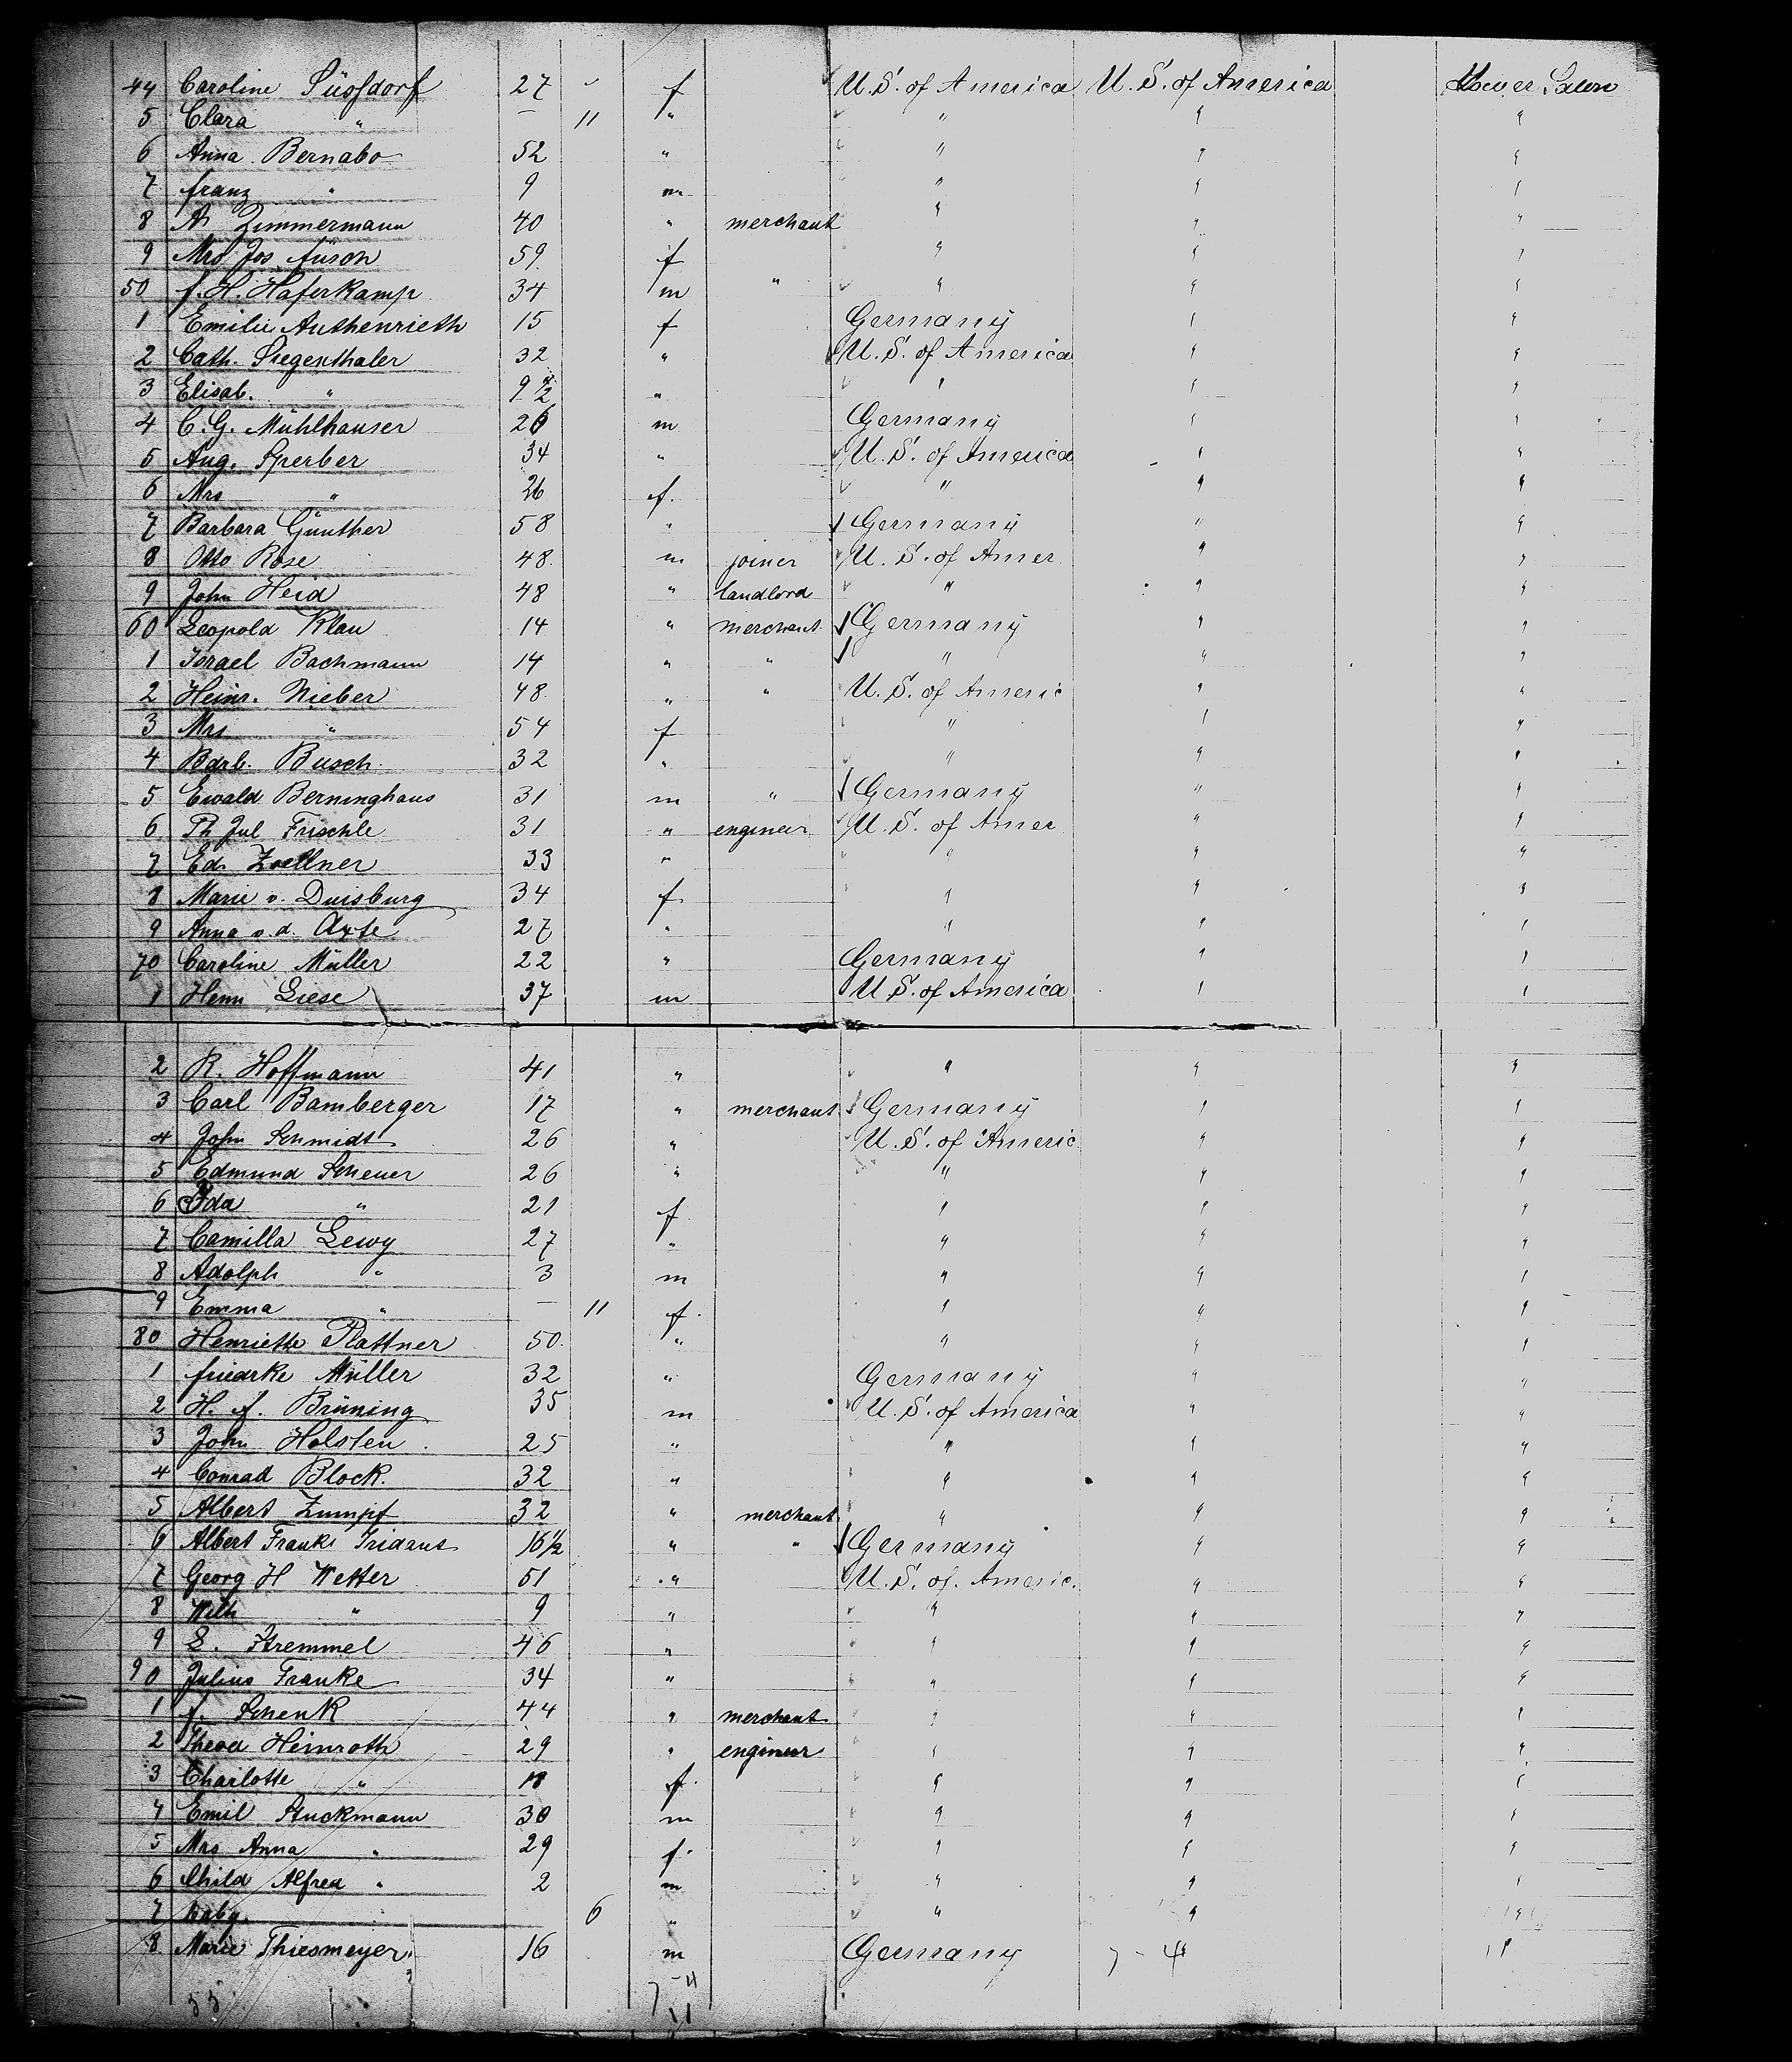 44 Caroline Süssdorf 27 " f U.S. of America U.S. of America Lower Saloon
5 Clara " — 11 " " " "
6 Anna Bernabo 52 " " " "
7 Franz " 9 m " " "
8 A. Zimmermann 40 " merchant " " "
9 Mrs Jos. 59 f " " "
50 F. H. Haferkamp 34 m " " " "
1 Emilie Authenrieth 15 f Germany " "
2 Cath. Siegenthaler 32 " U.S. of America " "
3 Elisab. " 9 1/2 " " " "
4 C. G. Mühlhauser 26 m Germany " "
5 Aug. Sperber 34 " U.S. of America " "
6 Mrs " 26 f. " " "
7 Barbara Günther 58 " Germany " "
8 Otto Rose 48. m joiner U.S. of Amer " "
9 John Heid 48 " landlord " " "
60 Leopold Klau 14 " merchant Germany " "
1 Israel Bachmann 14 " " " " "
2 Heinr. Nieber 48. " " U.S. of Americ " "
3 Mrs " 54 f " " "
4 Barb. Busch. 32 " " " "
5 Ewald Berninghaus 31 m " Germany " "
6 Th Jul Frischle 31 " engineer U.S. of Amer " "
7 Ed. Zoellner 33 " " " "
8 Marie v. Duisburg 34 f " " "
9 Anna v. d. Axte 27 " " " "
70 Caroline Müller 22 " Germany " "
1 Henri Giese 37 m U.S. of America " "
2 R. Hoffmann 41 " " " "
3 Carl Bamberger 17 " merchant Germany " "
4 John Schmidt 26 " U.S. of Americ " "
5 Edmund Scheuer 26 " " " "
6 Ida " 21 f " " "
7 Camilla Lewy 27 " " " "
8 Adolph " 3 m " " "
9 Emma " — 11 f. " " "
80 Henriette Plattner 50. " " " "
1 Friedrke Müller 32 " Germany " "
2 H. A. Brüning 35 m U.S. of America " "
3 John Holsten 25 " " " "
4 Conrad Block. 32 " " " "
5 Albert Zumpf 32 " merchant " " "
6 Albert Frank 16 1/2 " " Germany " "
7 Georg H Wetter 51 " U.S. of. Americ. " "
8 Wilh " 9 " " " "
9 L. Stremmel 46 " " " "
90 Julius Franke 34 " " " "
1 F. Schenk 44 " merchant " " "
2 Theod Heinroth 29 " engineer " " "
3 Charlotte " 18 f. " " "
4 Emil Stuckmann 30 m " " "
5 Mrs Anna " 29 f. " " "
6 Child Alfred " 2 m " " "
7 Baby. " 6 " " " "
8 Marie Thiesmeyer. 16 m Germany " "